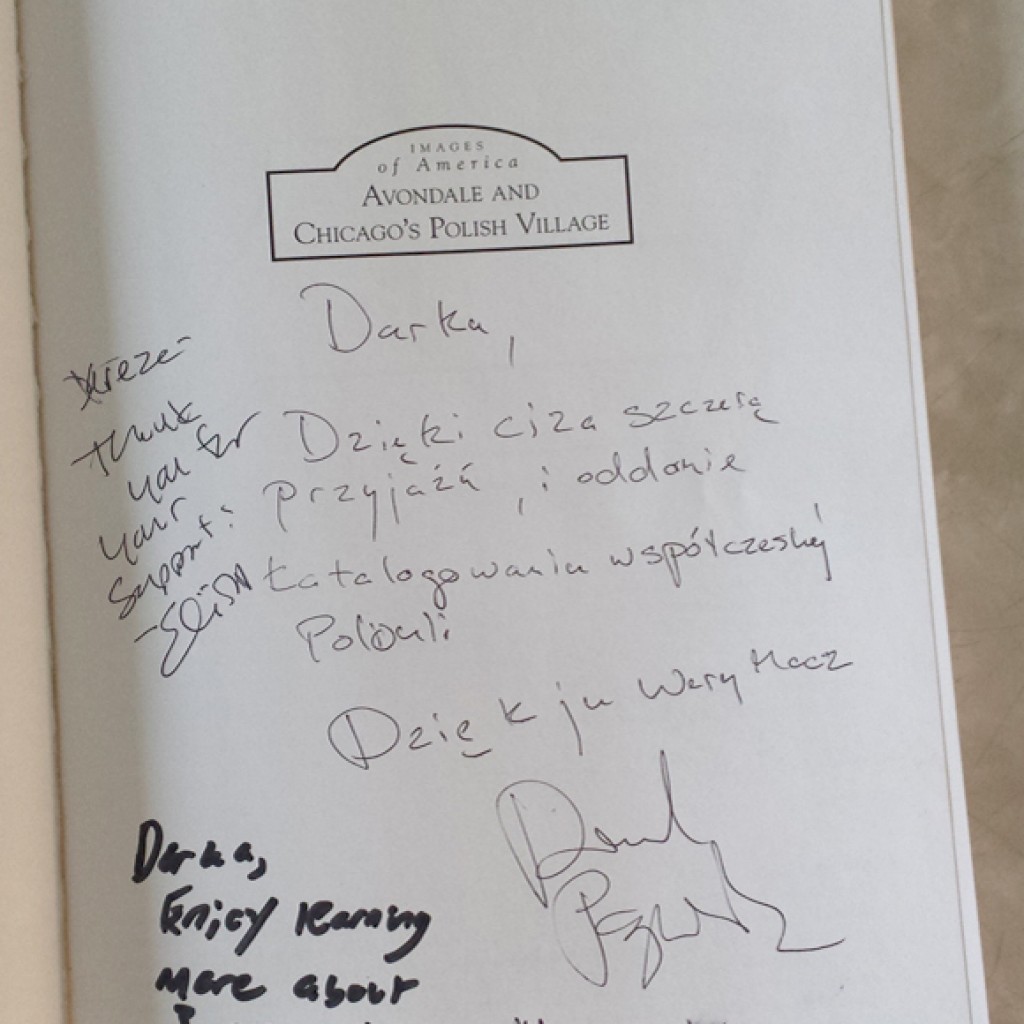 IMAGES
of America
AVONDALE AND
CHICAGO'S POLISH VILLAGE
Darka,
Dzięki ci za szczerą
przyjaźń, i oddanie
katalogowaniu współczesnej
Polonii
Dzięk ju wery macz
Thank
you for
your
support!
Darka,
Enjoy learning
more about